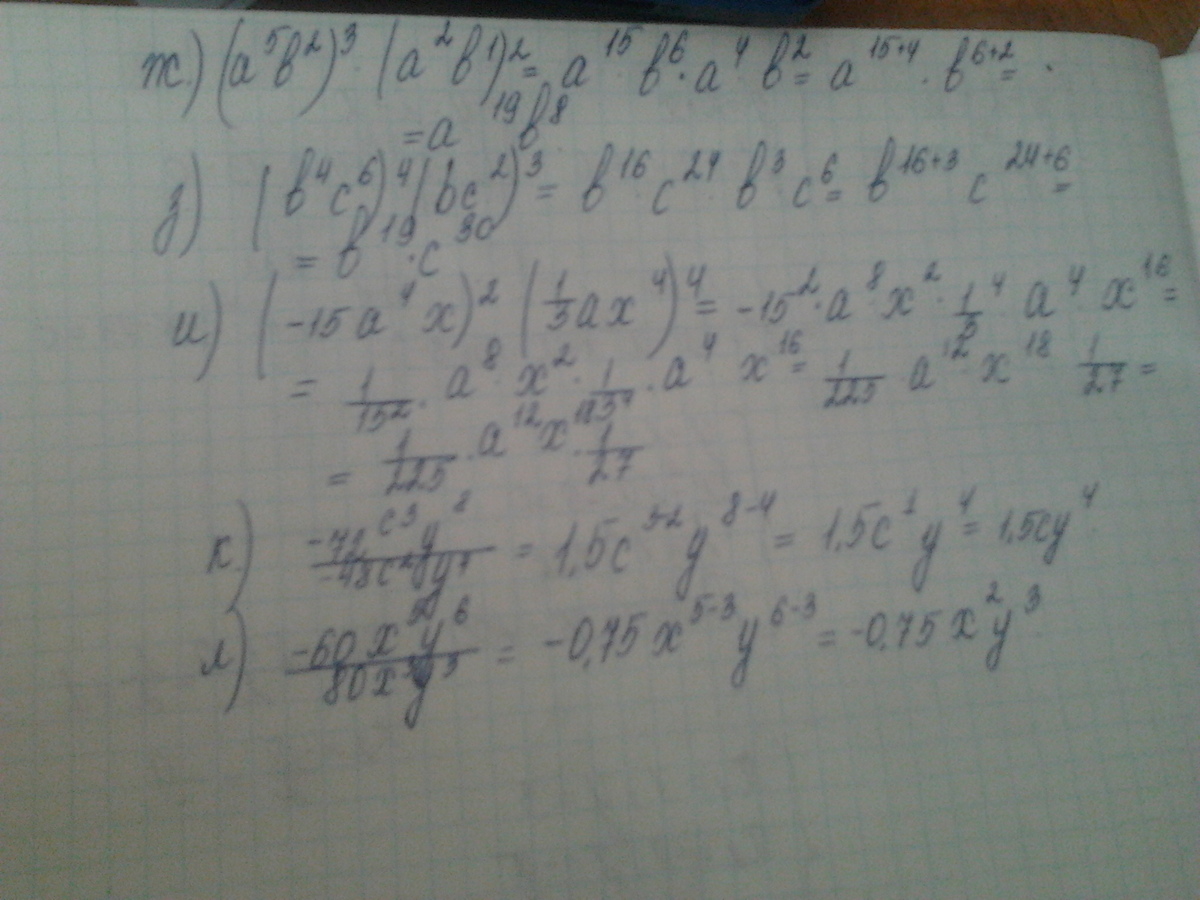 ж.) (a⁵b²)³ · (a²b¹)² = a¹⁵ · b⁶ · a⁴ b² = a¹⁵⁺⁴ · b⁶⁺² =
= a¹⁹b⁸
з) (b⁴c⁶)⁴ (bc²)³ = b¹⁶ · c²⁴ · b³ · c⁶ = b¹⁶⁺³ c²⁴⁺⁶ =
= b¹⁹ · c³⁰
и) (-15a⁴x)² (1/3 ax⁴)⁴ = -15² · a⁸ x² · 1/3⁴ a⁴ x¹⁶ =
= 1/15² · a⁸ · x² · 1/3⁴ · a⁴ x¹⁶ = 1/225 a¹² x¹⁸ 1/27 =
= 1/225 · a¹² x¹⁸ · 1/27
к) -72c³y⁸/-48c²y⁴ = 1,5c³⁻² y⁸⁻⁴ = 1,5c¹y⁴ = 1,5cy⁴
л) -60x⁵y⁶/80x³y³ = -0,75x⁵⁻³y⁶⁻³ = -0,75x²y³